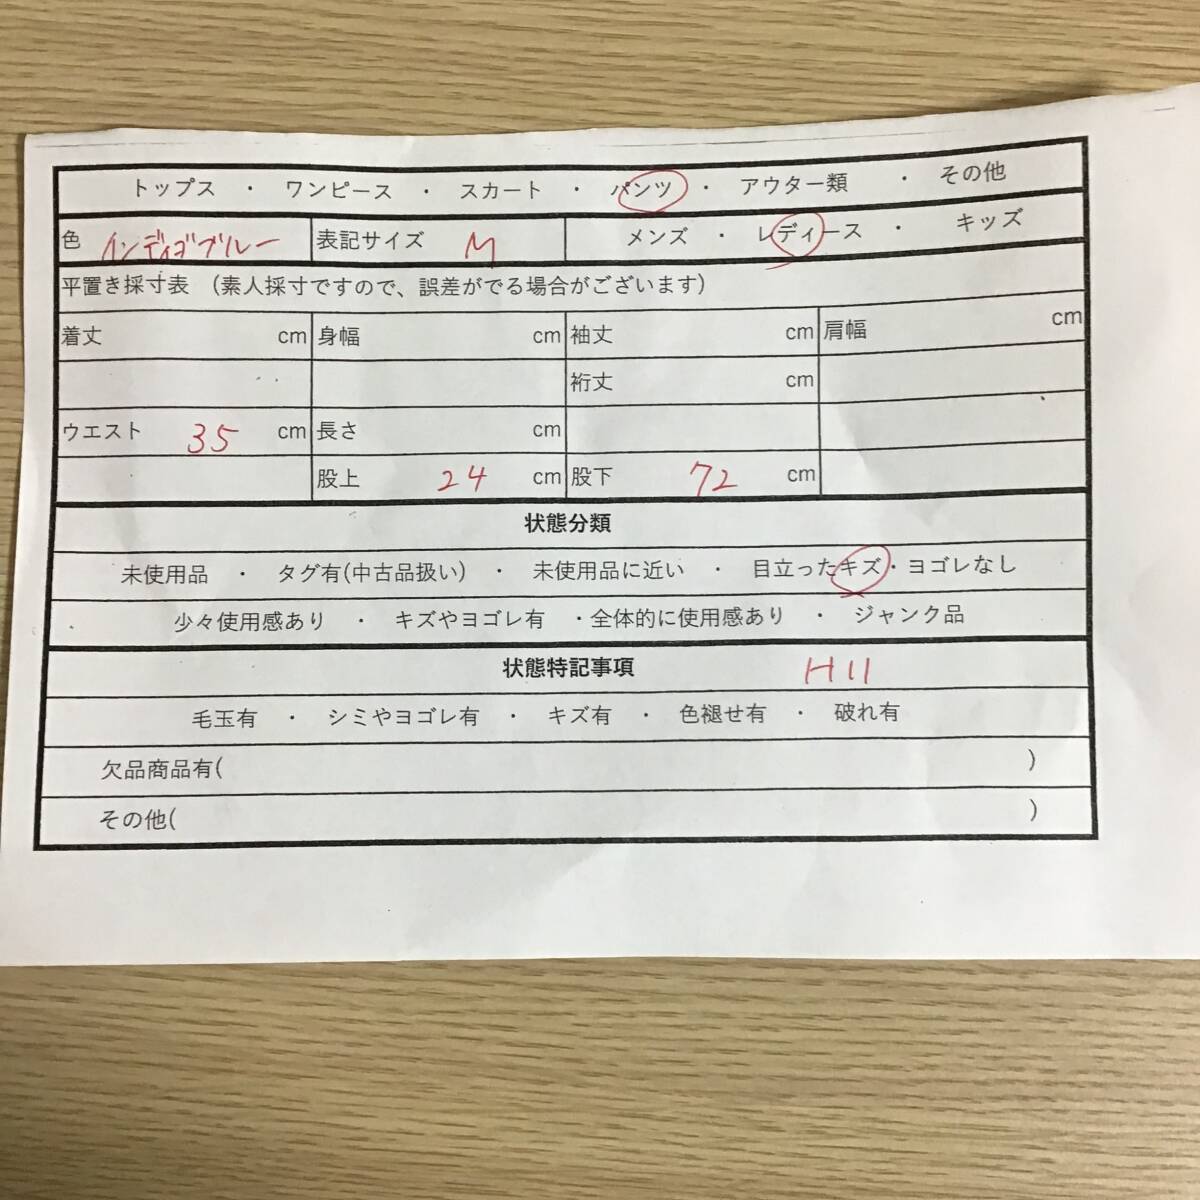 トップス ・ ワンピース ・ スカート ・ パンツ ・ アウター類 ・ その他
色 インディゴブルー 表記サイズ M メンズ ・ レディース ・ キッズ
平置き採寸表 (素人採寸ですので、誤差がでる場合がございます)
着丈 cm 身幅 cm 袖丈 cm 肩幅 cm
裄丈 cm
ウエスト 35 cm 長さ cm
股上 24 cm 股下 72 cm
状態分類
未使用品 ・ タグ有(中古品扱い) ・ 未使用品に近い ・ 目立ったキズ・ヨゴレなし
少々使用感あり ・ キズやヨゴレ有 ・全体的に使用感あり ・ ジャンク品
状態特記事項 H11
毛玉有 ・ シミやヨゴレ有 ・ キズ有 ・ 色褪せ有 ・ 破れ有
欠品商品有( )
その他( )